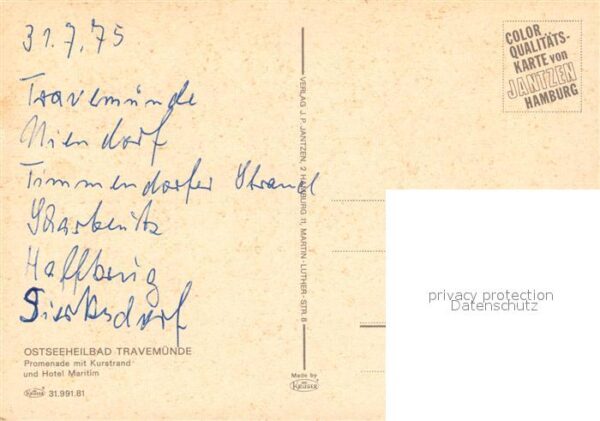 31.7.75
Travemünde
Niendorf
Timmendorfer Strand
Scharbeutz
Haffkrug
Sierksdorf
OSTSEEHEILBAD TRAVEMÜNDE
Promenade mit Kurstrand
und Hotel Maritim
Krüger 31.991.81
VERLAG J. P. JANTZEN, 2 HAMBURG 11, MARTIN-LUTHER-STR. 8
Made by
KRÜGER
COLOR
QUALITÄTS-
KARTE von
JANTZEN
HAMBURG
privacy protection
Datenschutz